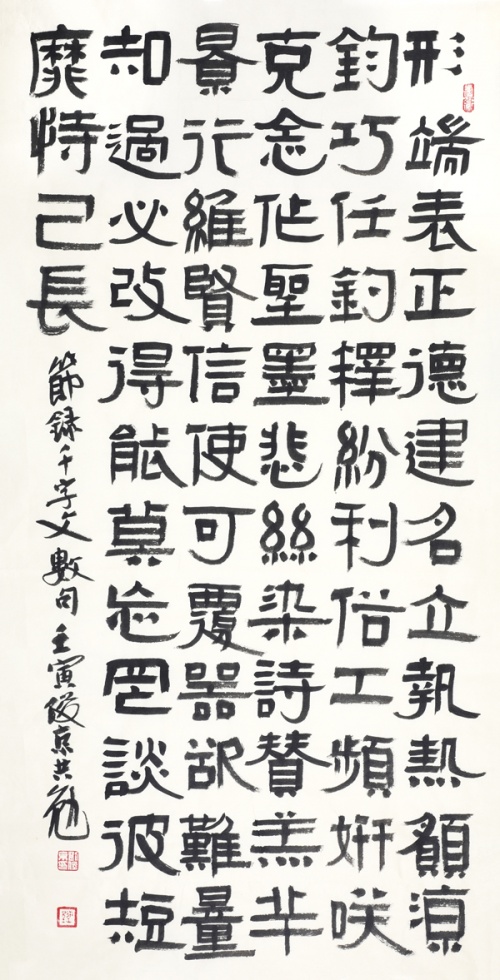 形端表正德建名立執熱願涼
鈞巧任釣釋紛利俗工頻妍咲
克念作聖墨悲絲染詩贊羔羊
景行維賢信使可覆器欲難量
知過必改得能莫忘罔談彼短
靡恃己長
節録千字文數句壬寅俊京共勉